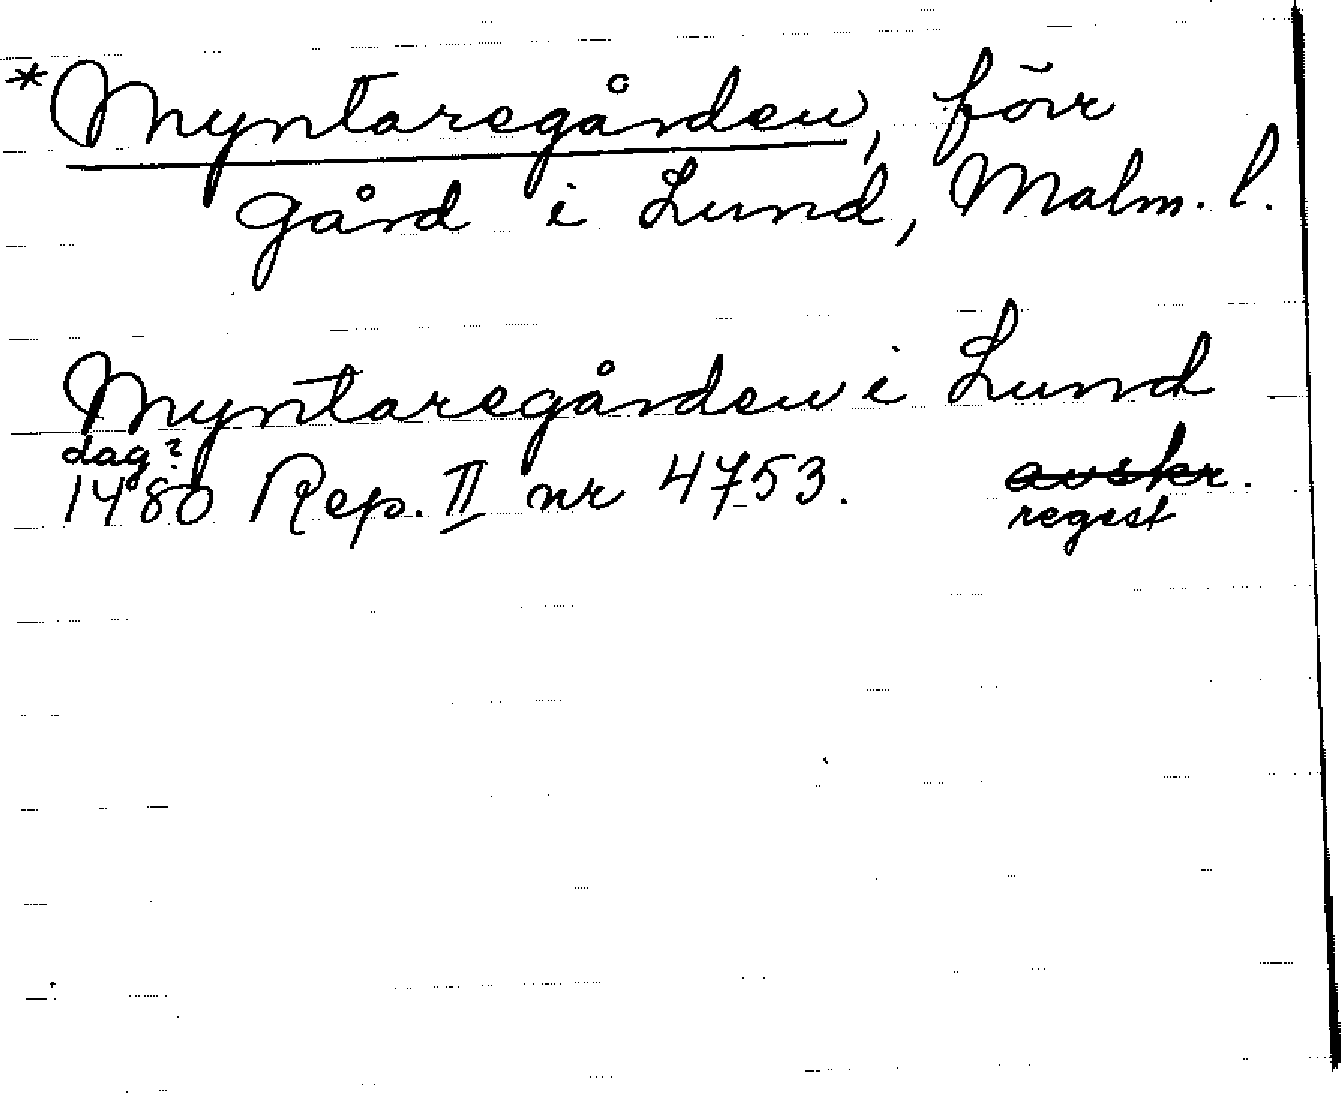 *Myntaregården, förr
gård i Lund, Malm. l.
Myntaregården i Lund
dag?
1480 Rep. II nr 4753. avskr.
regest